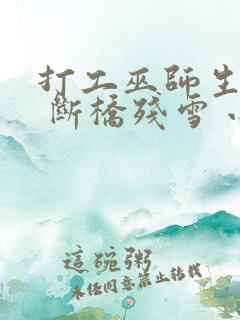 打工巫師生
斷橋殘雪、
這碗粥
未經同意禁止轉載